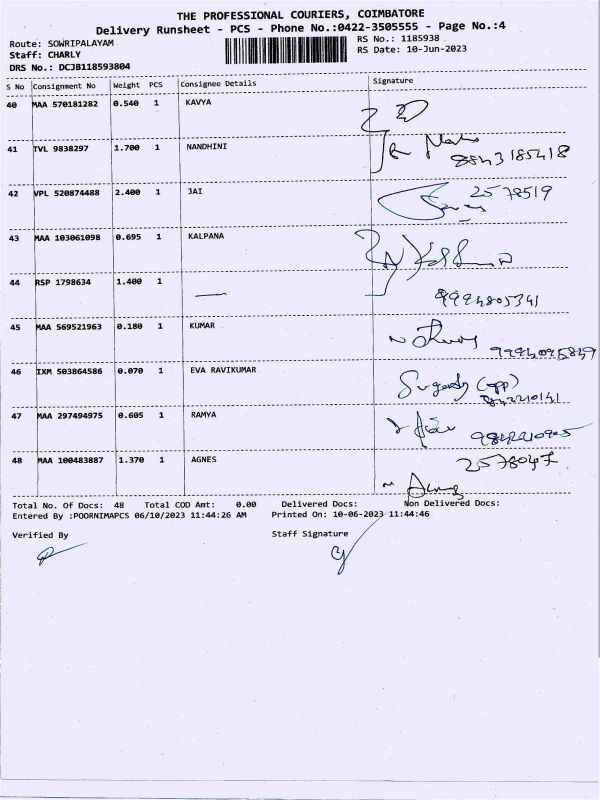 THE PROFESSIONAL COURIERS, COIMBATORE
Delivery Runsheet - PCS - Phone No.:0422-3505555 - Page No.:4
Route: SOWRIPALAYAM RS No.: 1185938
Staff: CHARLY RS Date: 10-Jun-2023
DRS No.: DCJB118593804
S No Consignment No Weight PCS Consignee Details Signature
40 MAA 570181282 0.540 1 KAVYA
41 TVL 9838297 1.700 1 NANDHINI
8843185418
42 VPL 520874488 2.400 1 JAI 2578519
43 MAA 103061098 0.695 1 KALPANA
44 RSP 1798634 1.400 1
9994805341
45 MAA 569521963 0.180 1 KUMAR
9994095849
46 IXM 503864586 0.070 1 EVA RAVIKUMAR
47 MAA 297494975 0.605 1 RAMYA
48 MAA 100483887 1.370 1 AGNES 2578047
Total No. Of Docs: 48 Total COD Amt: 0.00 Delivered Docs: Non Delivered Docs:
Entered By :POORNIMAPCS 06/10/2023 11:44:26 AM Printed On: 10-06-2023 11:44:46
Verified By Staff Signature